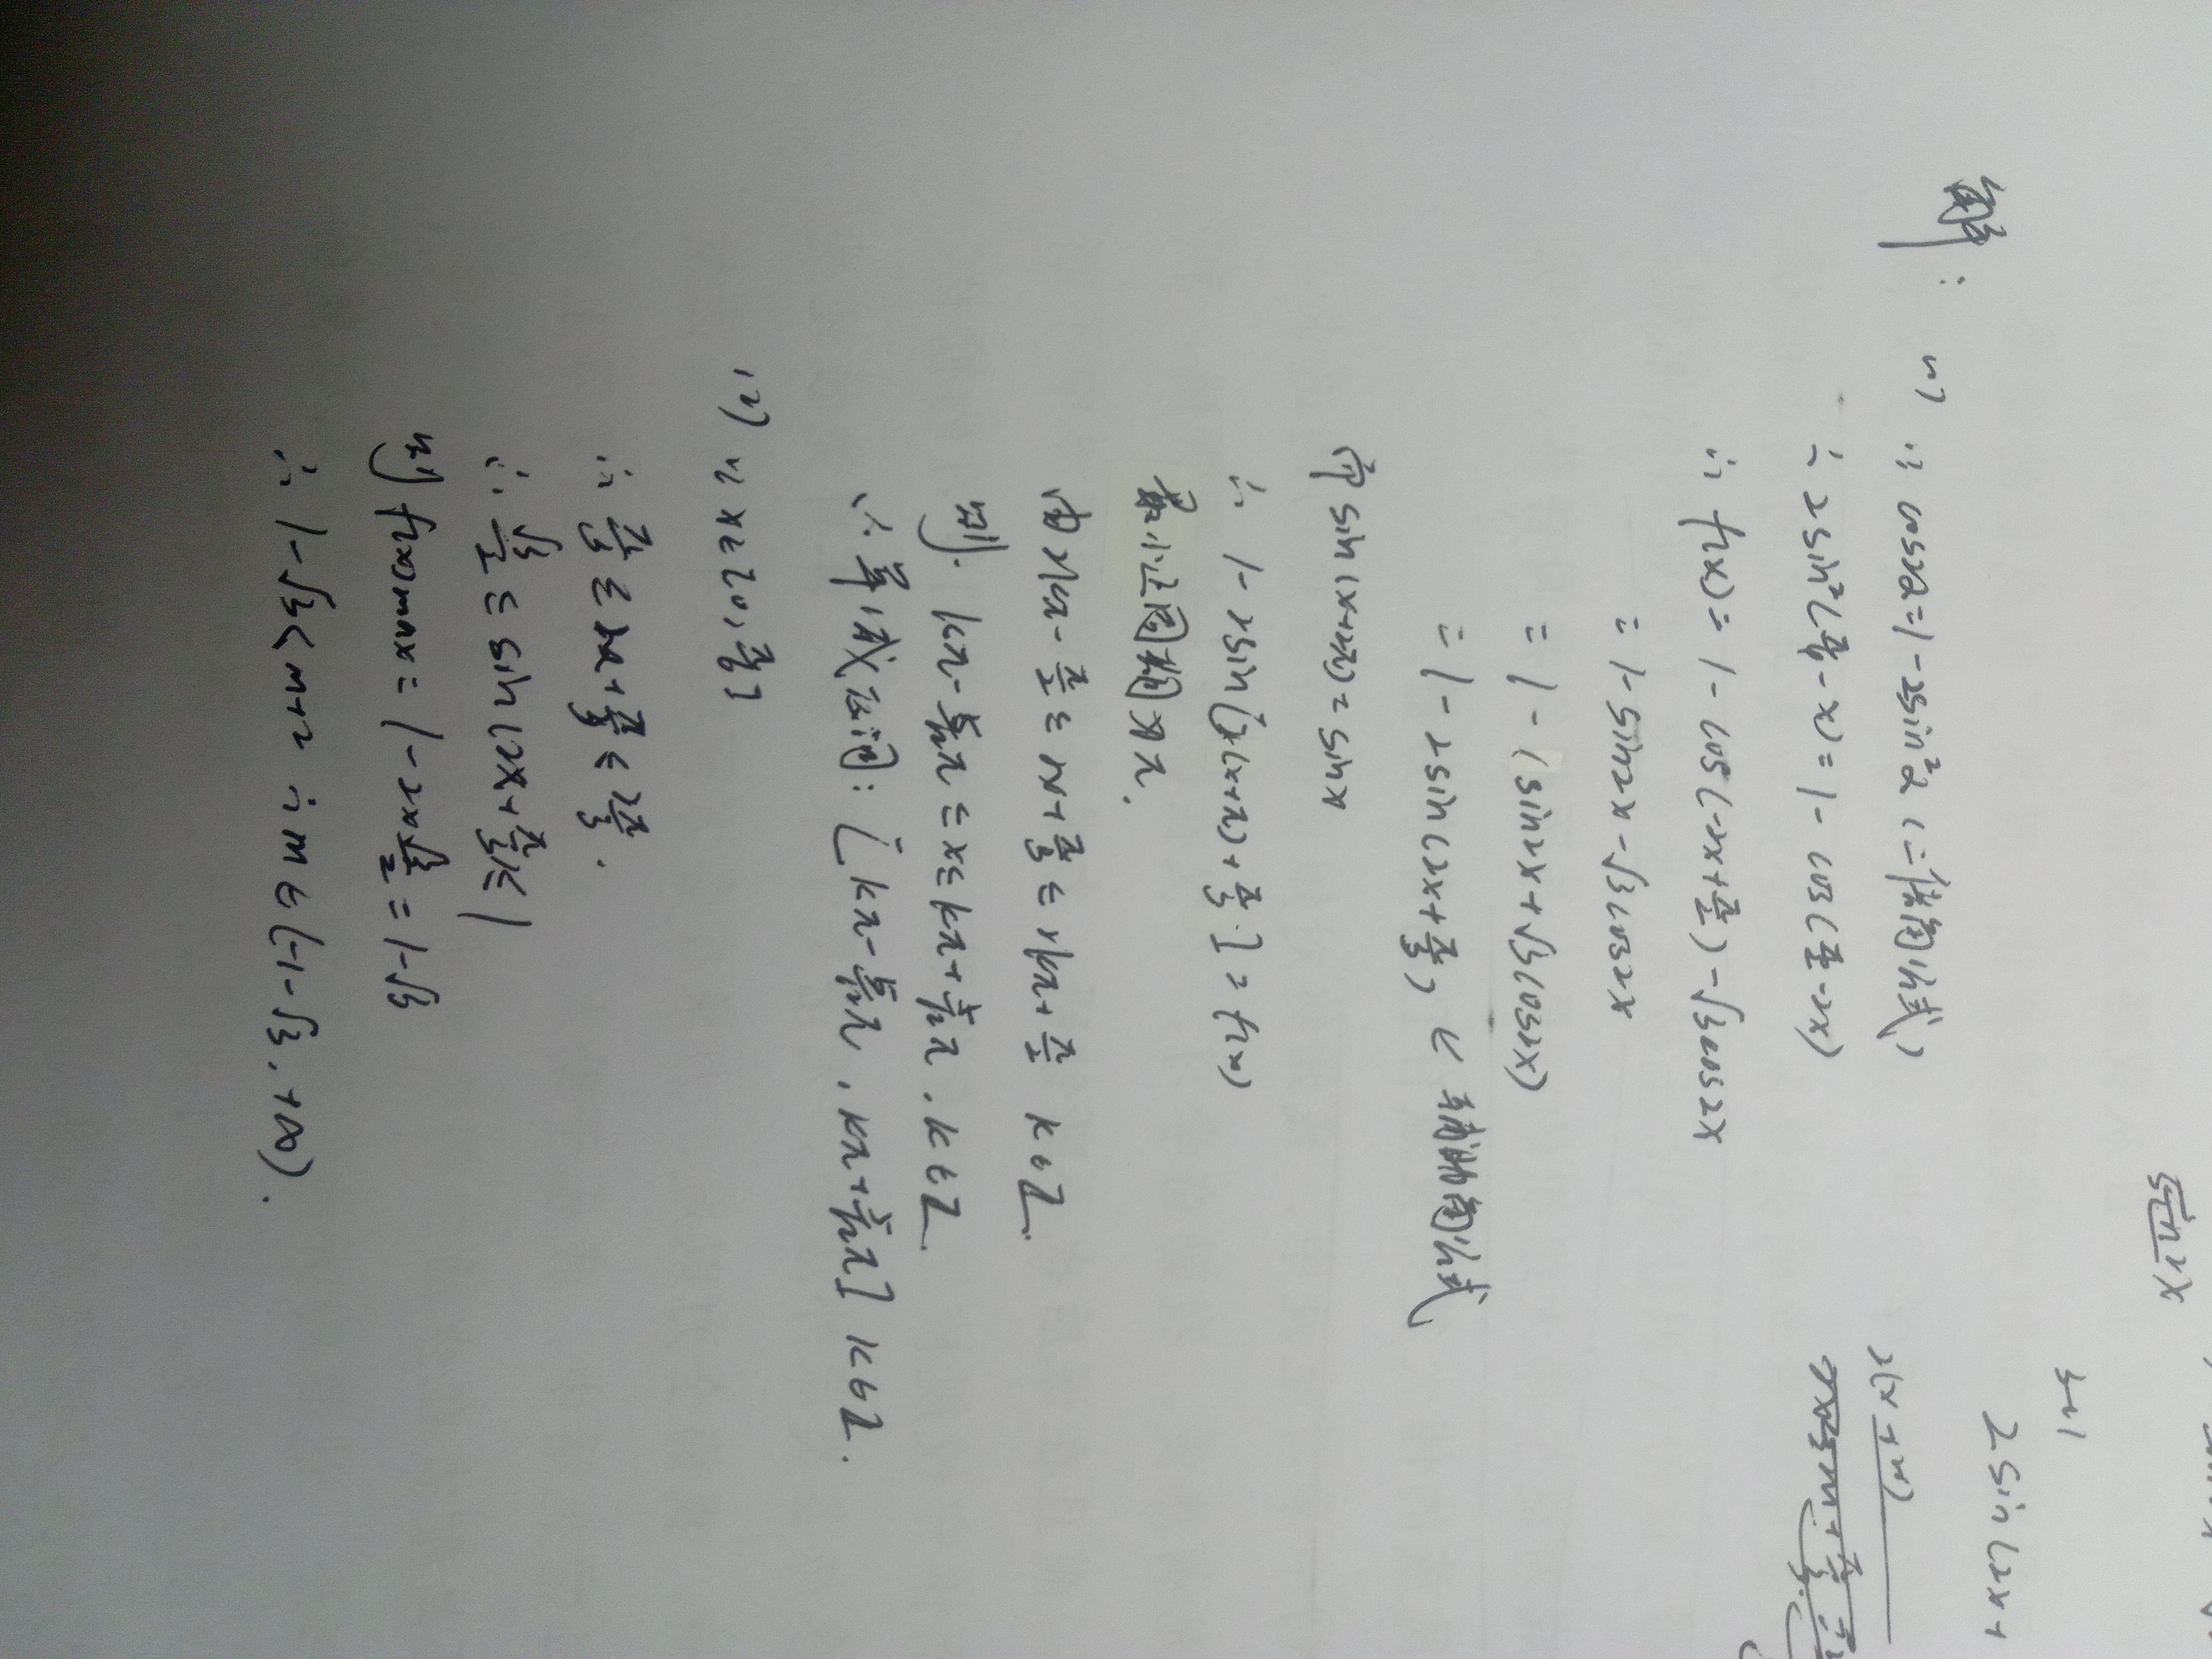 解: (1) ∵ cos2α=1-2sin²α (二倍角公式)
∴ 2sin²(π/4-x)=1-cos(π/2-2x)
∴ f(x)=1-cos(-2x+π/2)-√3cos2x
=1-sin2x-√3cos2x
=1-(sin2x+√3cos2x)
=1-2sin(2x+π/3) 辅助角公式
由 sin(x+2π)=sinx
∴ 1-2sin[2(x+π)+π/3]=f(x)
最小正周期为π.
由2kπ-π/2≤2x+π/3≤2kπ+π/2 k∈Z.
则 kπ-5/12π≤x≤kπ+1/12π, k∈Z.
∴单减区间: [kπ-5/12π, kπ+1/12π] k∈Z.
(2) x∈[0,π/6]
∴ π/3≤2x+π/3≤2π/3.
∴ √3/2≤sin(2x+π/3)≤1
则f(x)max=1-2×√3/2=1-√3
∴ 1-√3<m+2 ∴ m∈(-1-√3,+∞).
2(x+m)
2sin(2x+